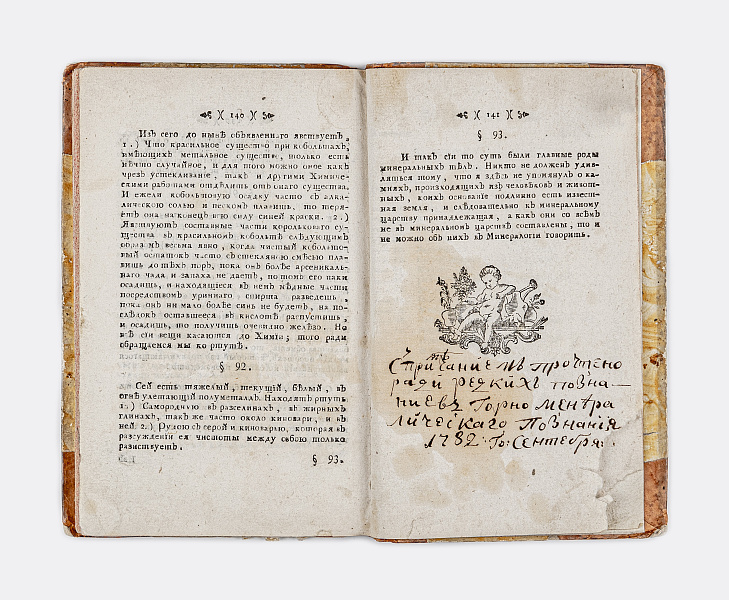 140
Изъ сего до нынѣ объявленнаго явствуетъ,
1.) Что красильное существо при кобольтахъ,
имѣющихъ метальное существо, только есть
нѣчто случайное, и для того можно оное какъ
чрезъ устекливание, такъ и другими Химиче-
скими работами отдѣлить отъ онаго существа.
И ежели кобольтовую осадку часто съ алка-
лическою солью и пескомъ плавить, то теря-
етъ она наконецъ всю силу синей краски. 2.)
Явствуютъ составные части корольковаго су-
щества въ красильномъ кобольтѣ слѣдующимъ
образомъ весьма явно, когда чистый кобольто-
вый остатокъ часто съ стекляною смѣсью пла-
вишь до тѣхъ поръ, пока онъ болѣе арсеникаль-
наго чада и запаха не даетъ, потомъ его паки
осадишь, и находящіеся въ немъ мѣдные части
посредствомъ уриннаго спирта разведешь,
пока онъ ни мало болѣе синь не будетъ, на по-
слѣдокъ оставшееся въ кислотѣ распустишь,
и осадишь, то получишь очевидно желѣзо. Но
всѣ сіи вещи касаются до Химіи; того ради
обращаемся мы ко ртутѣ.
§ 92.
Сей есть тяжелый, текущій, бѣлый, въ
огнѣ улетающій полуметаллъ. Находятъ ртуть
1.) Самородную въ разселинахъ, въ жирныхъ
глинахъ, такъ же часто около киновари, и въ
ней 2.) Рудою съ серой и киноварью, которая въ
разсужденіи ея чистоты между собою только
разнствуетъ.
§ 93.
141
§ 93.
И такъ сіи то суть были главные роды
минеральныхъ тѣлъ. Никто не долженъ удив-
ляться тому, что я здѣсь не упомянулъ о ка-
мняхъ, происходящихъ изъ человѣковъ и живот-
ныхъ, коихъ основаніе подлинно есть извест-
ная земля, и слѣдовательно къ минеральному
царству принадлежащая, а какъ они со всѣмъ
не въ минеральномъ царствѣ составлены, то и
не можно объ нихъ въ Минералогіи говорить.
прочтено
ради редкихъ позна-
ниевъ Горно Менера
лическаго Познанія
1782: Го: Сентебря: